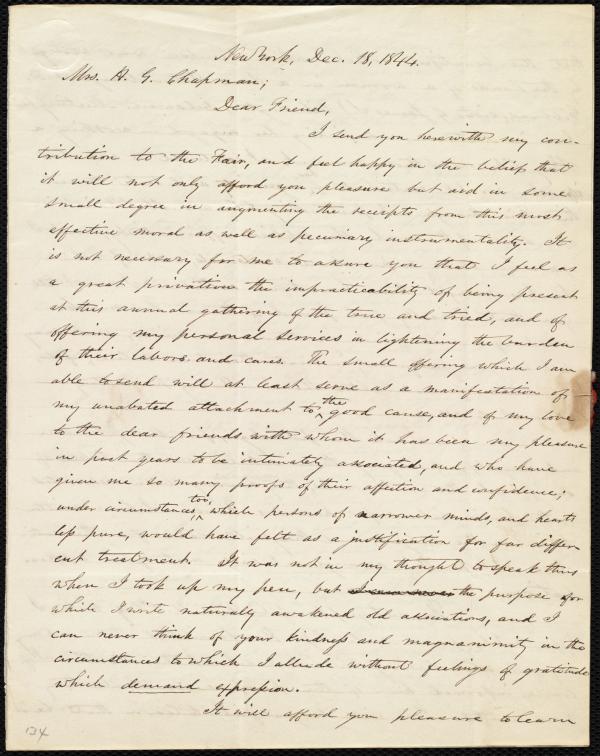 New York, Dec. 18, 1844.
Mrs. H. G. Chapman;
Dear Friend,
I send you herewith my con-
tribution to the Fair, and feel happy in the belief that
it will not only afford you pleasure but aid in some
small degree in augmenting the receipts from this most
effective moral as well as pecuniary instrumentality. It
is not necessary for me to assure you that I feel as
a great privation the impracticability of being present
at this annual gathering of the true and tried, and of
offering my personal services in lightening the burden
of their labors and cares. The small offering which I am
able to send will at least serve as a manifestation of
my unabated attachment to the good cause, and of my love
to the dear friends with whom it has been my pleasure
in past years to be intimately associated, and who have
given me so many proofs of their affection and confidence;
under circumstances, too, which persons of narrower minds, and hearts
less pure, would have felt as a justification for far differ-
ent treatment. It was not in my thought to speak thus
when I took up my pen, but the purpose for
which I write naturally awakened old associations, and I
can never think of your kindness and magnanimity in the
circumstances to which I allude without feelings of gratitude
which demand expression.
It will afford you pleasure to learn
134